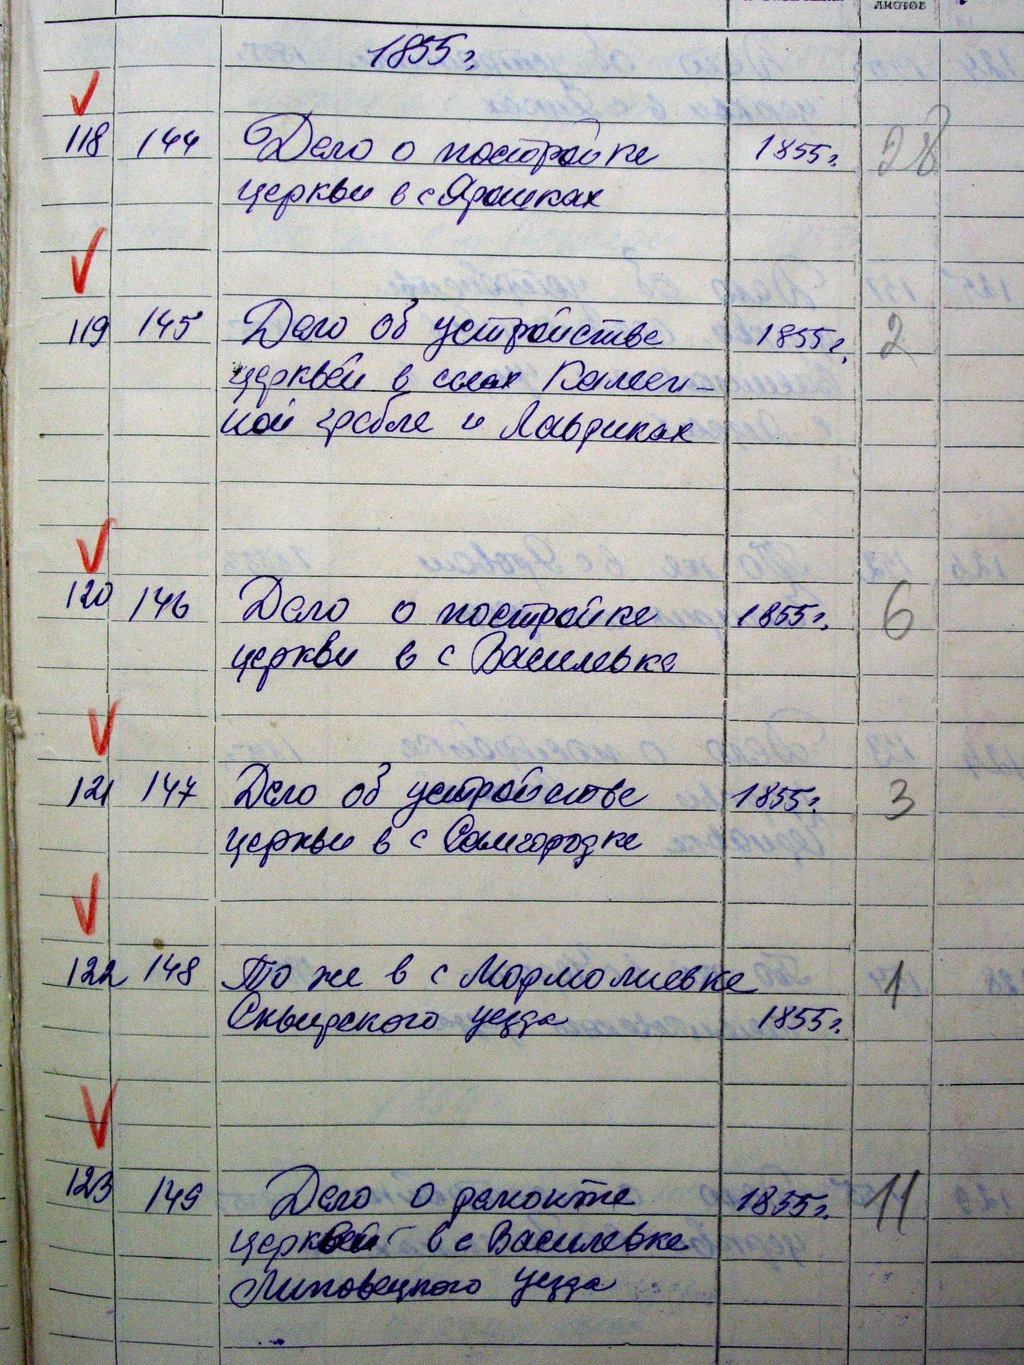 листов
1855 г.
118 144 Дело о постройке 1855 г. 28
церкви в с Ярошках
119 145 Дело об устройстве 1855 г. 2
церквей в селах Камен-
ной гребле и Лавриках
120 146 Дело о постройке 1855 г. 6
церкви в с Василевке
121 147 Дело об устройстве 1855 г. 3
церкви в с Самгородке
122 148 То же в с Мормолиевке 1
Сквирского уезда 1855 г.
123 149 Дело о ремонте 1855 г. 11
церквей в с Василевке
Липовецкого уезда